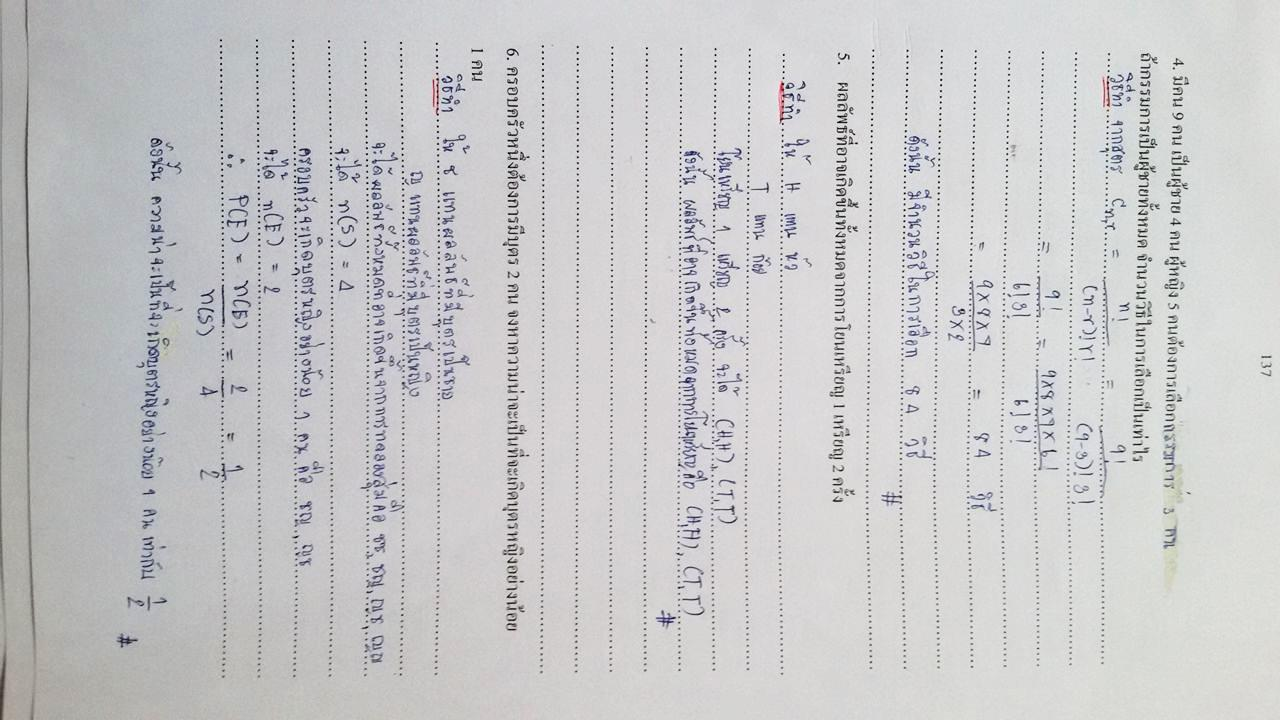 137
4. มีคน 9 คน เป็นผู้ชาย 4 คน ผู้หญิง 5 คนต้องการเลือกกรรมการ 3 คน
ถ้ากรรมการเป็นผู้ชายทั้งหมด จำนวนวิธีในการเลือกเป็นเท่าไร
วิธีทำ จากสูตร Cn,r = n! / (n-r)!r! = 9! / (9-3)!3!
= 9! / 6!3! = 9x8x7x6! / 6!3!
= 9x8x7 / 3x2 = 84 วิธี
ดังนั้น มีจำนวนวิธีในการเลือก 84 วิธี #
5. ผลลัพธ์ที่อาจเกิดขึ้นทั้งหมดจากการโยนเหรียญ 1 เหรียญ 2 ครั้ง
วิธีทำ ให้ H แทน หัว
T แทน ก้อย
โยนเหรียญ 1 เหรียญ 2 ครั้ง จะได้ (H,H), (T,T)
ดังนั้น ผลลัพธ์ที่อาจเกิดขึ้นทั้งหมดจากการโยนเหรียญคือ (H,H), (T,T) #
6. ครอบครัวหนึ่งต้องการมีบุตร 2 คน จงหาความน่าจะเป็นที่จะเกิดบุตรหญิงอย่างน้อย
1 คน
วิธีทำ ให้ ช แทนผลลัพธ์ที่มีบุตรเป็นชาย
ญ แทนผลลัพธ์ที่มีบุตรเป็นหญิง
จะได้ผลลัพธ์ทั้งหมดที่อาจเกิดขึ้นจากการทดลองสุ่มคือ ชช, ชญ, ญช, ญญ
จะได้ n(S) = 4
ครอบครัวจะเกิดบุตรหญิงอย่างน้อย 1 คน คือ ชญ, ญช
จะได้ n(E) = 2
∴ P(E) = n(E) / n(S) = 2 / 4 = 1 / 2
ดังนั้น ความน่าจะเป็นที่จะเกิดบุตรหญิงอย่างน้อย 1 คน เท่ากับ 1 / 2 #